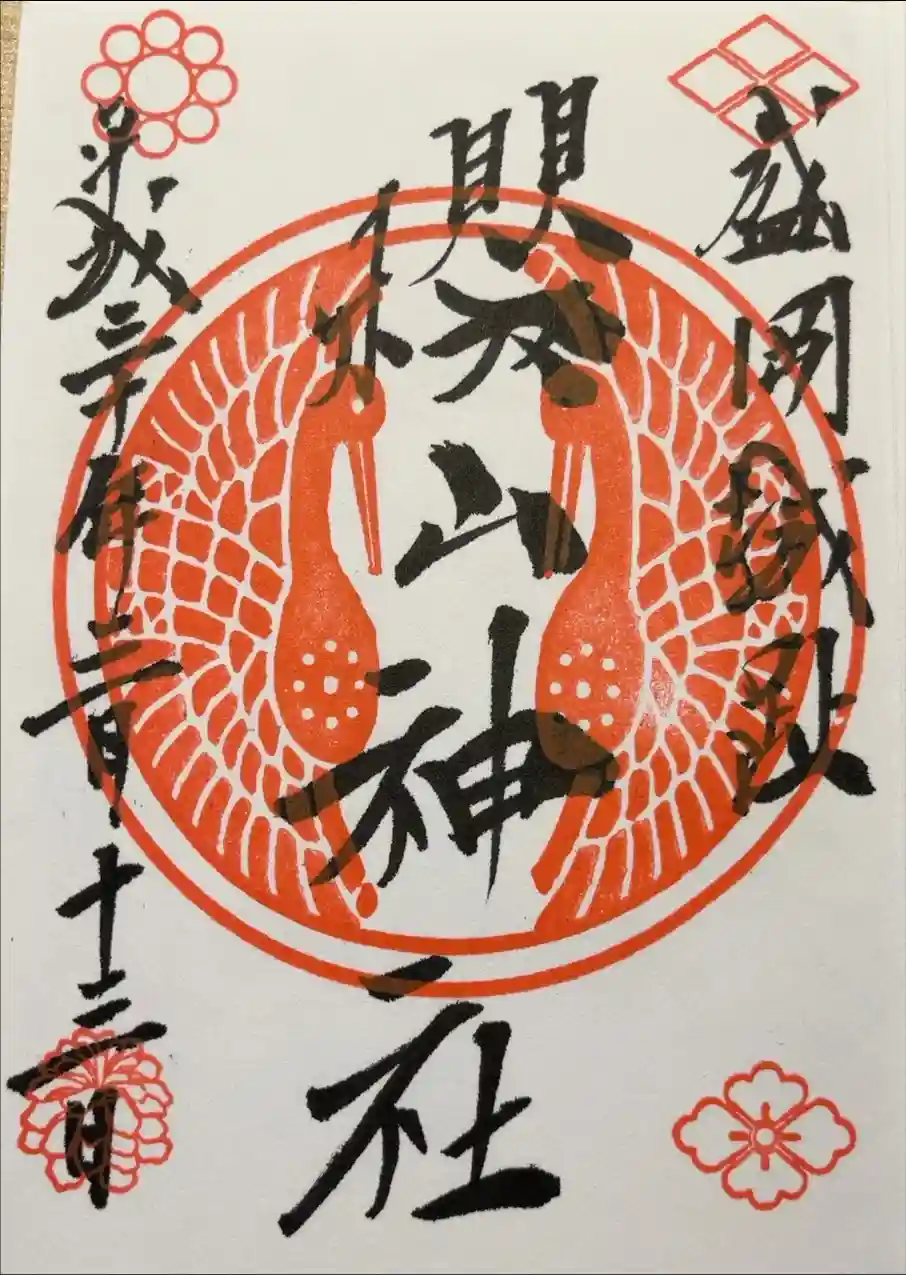 盛岡城址
櫻山神社
平成三十年二月十三日